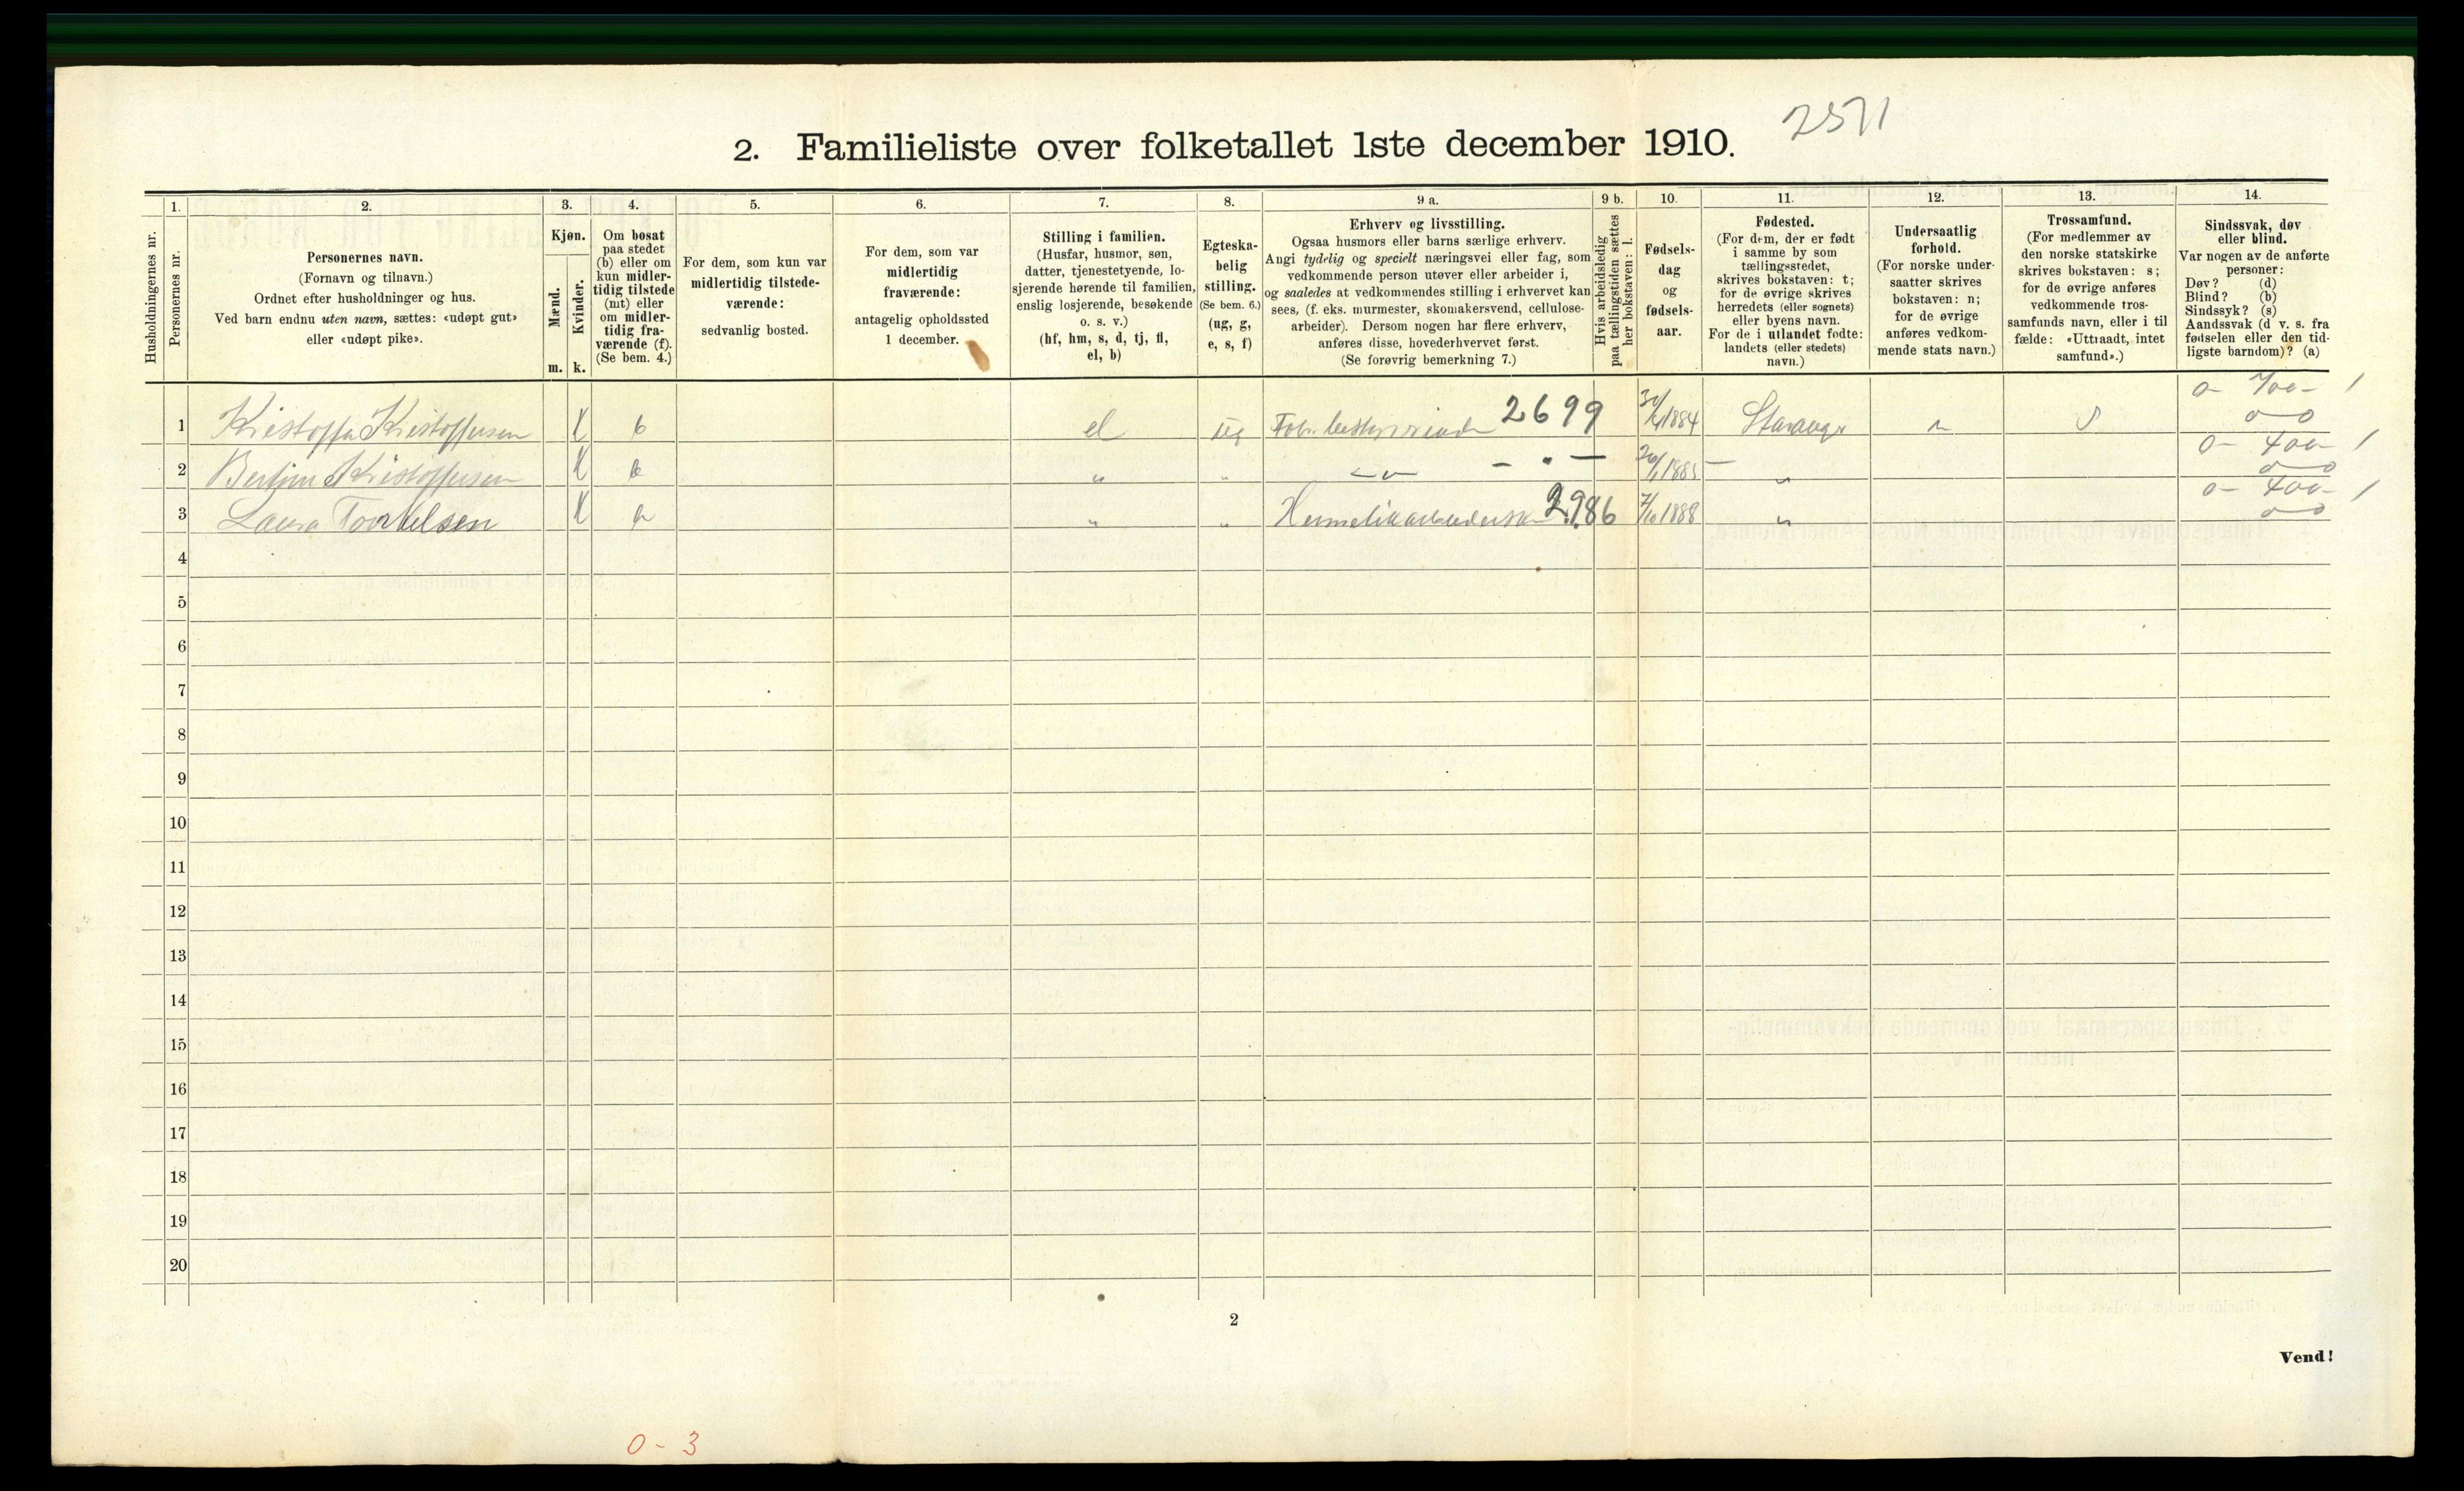 2571
2. Familieliste over folketallet 1ste december 1910.
Husholdningernes nr.
1.
Personernes nr.
2.
Personernes navn.
(Fornavn og tilnavn.)
Ordnet efter husholdninger og hus.
Ved barn endnu uten navn, sættes: «udøpt gut»
eller «udøpt pike».
3.
Kjøn.
Mænd.
Kvinder.
m. k.
4.
Om bosat
paa stedet
(b) eller om
kun midler-
tidig tilstede
(mt) eller
om midler-
tidig fra-
værende (f).
(Se bem. 4.)
5.
For dem, som kun var
midlertidig tilstede-
værende:
sedvanlig bosted.
6.
For dem, som var
midlertidig
fraværende:
antagelig opholdssted
1 december.
7.
Stilling i familien.
(Husfar, husmor, søn,
datter, tjenestetyende, lo-
sjerende hørende til familien,
enslig losjerende, besøkende
o. s. v.)
(hf, hm, s, d, tj, fl,
el, b)
8.
Egteska-
belig
stilling.
(Se bem. 6.)
(ug, g,
e, s, f)
9 a.
Erhverv og livsstilling.
Ogsaa husmors eller barns særlige erhverv.
Angi tydelig og specielt næringsvei eller fag, som
vedkommende person utøver eller arbeider i,
og saaledes at vedkommendes stilling i erhvervet kan
sees, (f. eks. murmester, skomakersvend, cellulose-
arbeider). Dersom nogen har flere erhverv,
anføres disse, hovederhvervet først.
(Se forøvrig bemerkning 7.)
9 b.
Hvis arbeidsledig
paa tællingstiden sættes
her bokstaven: l.
10.
Fødsels-
dag
og
fødsels-
aar.
11.
Fødested.
(For dem, der er født
i samme by som
tællingsstedet,
skrives bokstaven: t;
for de øvrige skrives
herredets (eller sognets)
eller byens navn.
For de i utlandet fødte:
landets (eller stedets)
navn.)
12.
Undersaatlig
forhold.
(For norske under-
saatter skrives
bokstaven: n;
for de øvrige
anføres vedkom-
mende stats navn.)
13.
Trossamfund.
(For medlemmer av
den norske statskirke
skrives bokstaven: s;
for de øvrige anføres
vedkommende tros-
samfunds navn, eller i til
fælde: «Uttraadt, intet
samfund».)
14.
Sindssvak, døv
eller blind.
Var nogen av de anførte
personer:
Døv? (d)
Blind? (b)
Sindssyk? (s)
Aandssvak (d v. s. fra
fødselen eller den tid-
ligste barndom)? (a)
0- 700- /
1 Kristoffa Kristoffersen k b el ug 2699 1884 Stavanger n s 0 0
0- 400- /
2 Bertine Kristoffersen k b „ „ - „ - 1885 „ 0 0
0- 400- /
3 Laura Torkelsen k b „ „ Hermetikarbeiderske 2986 7/10 1888 „ 0 0
4
5
6
7
8
9
10
11
12
13
14
15
16
17
18
19
20
2
Vend!
0 - 3